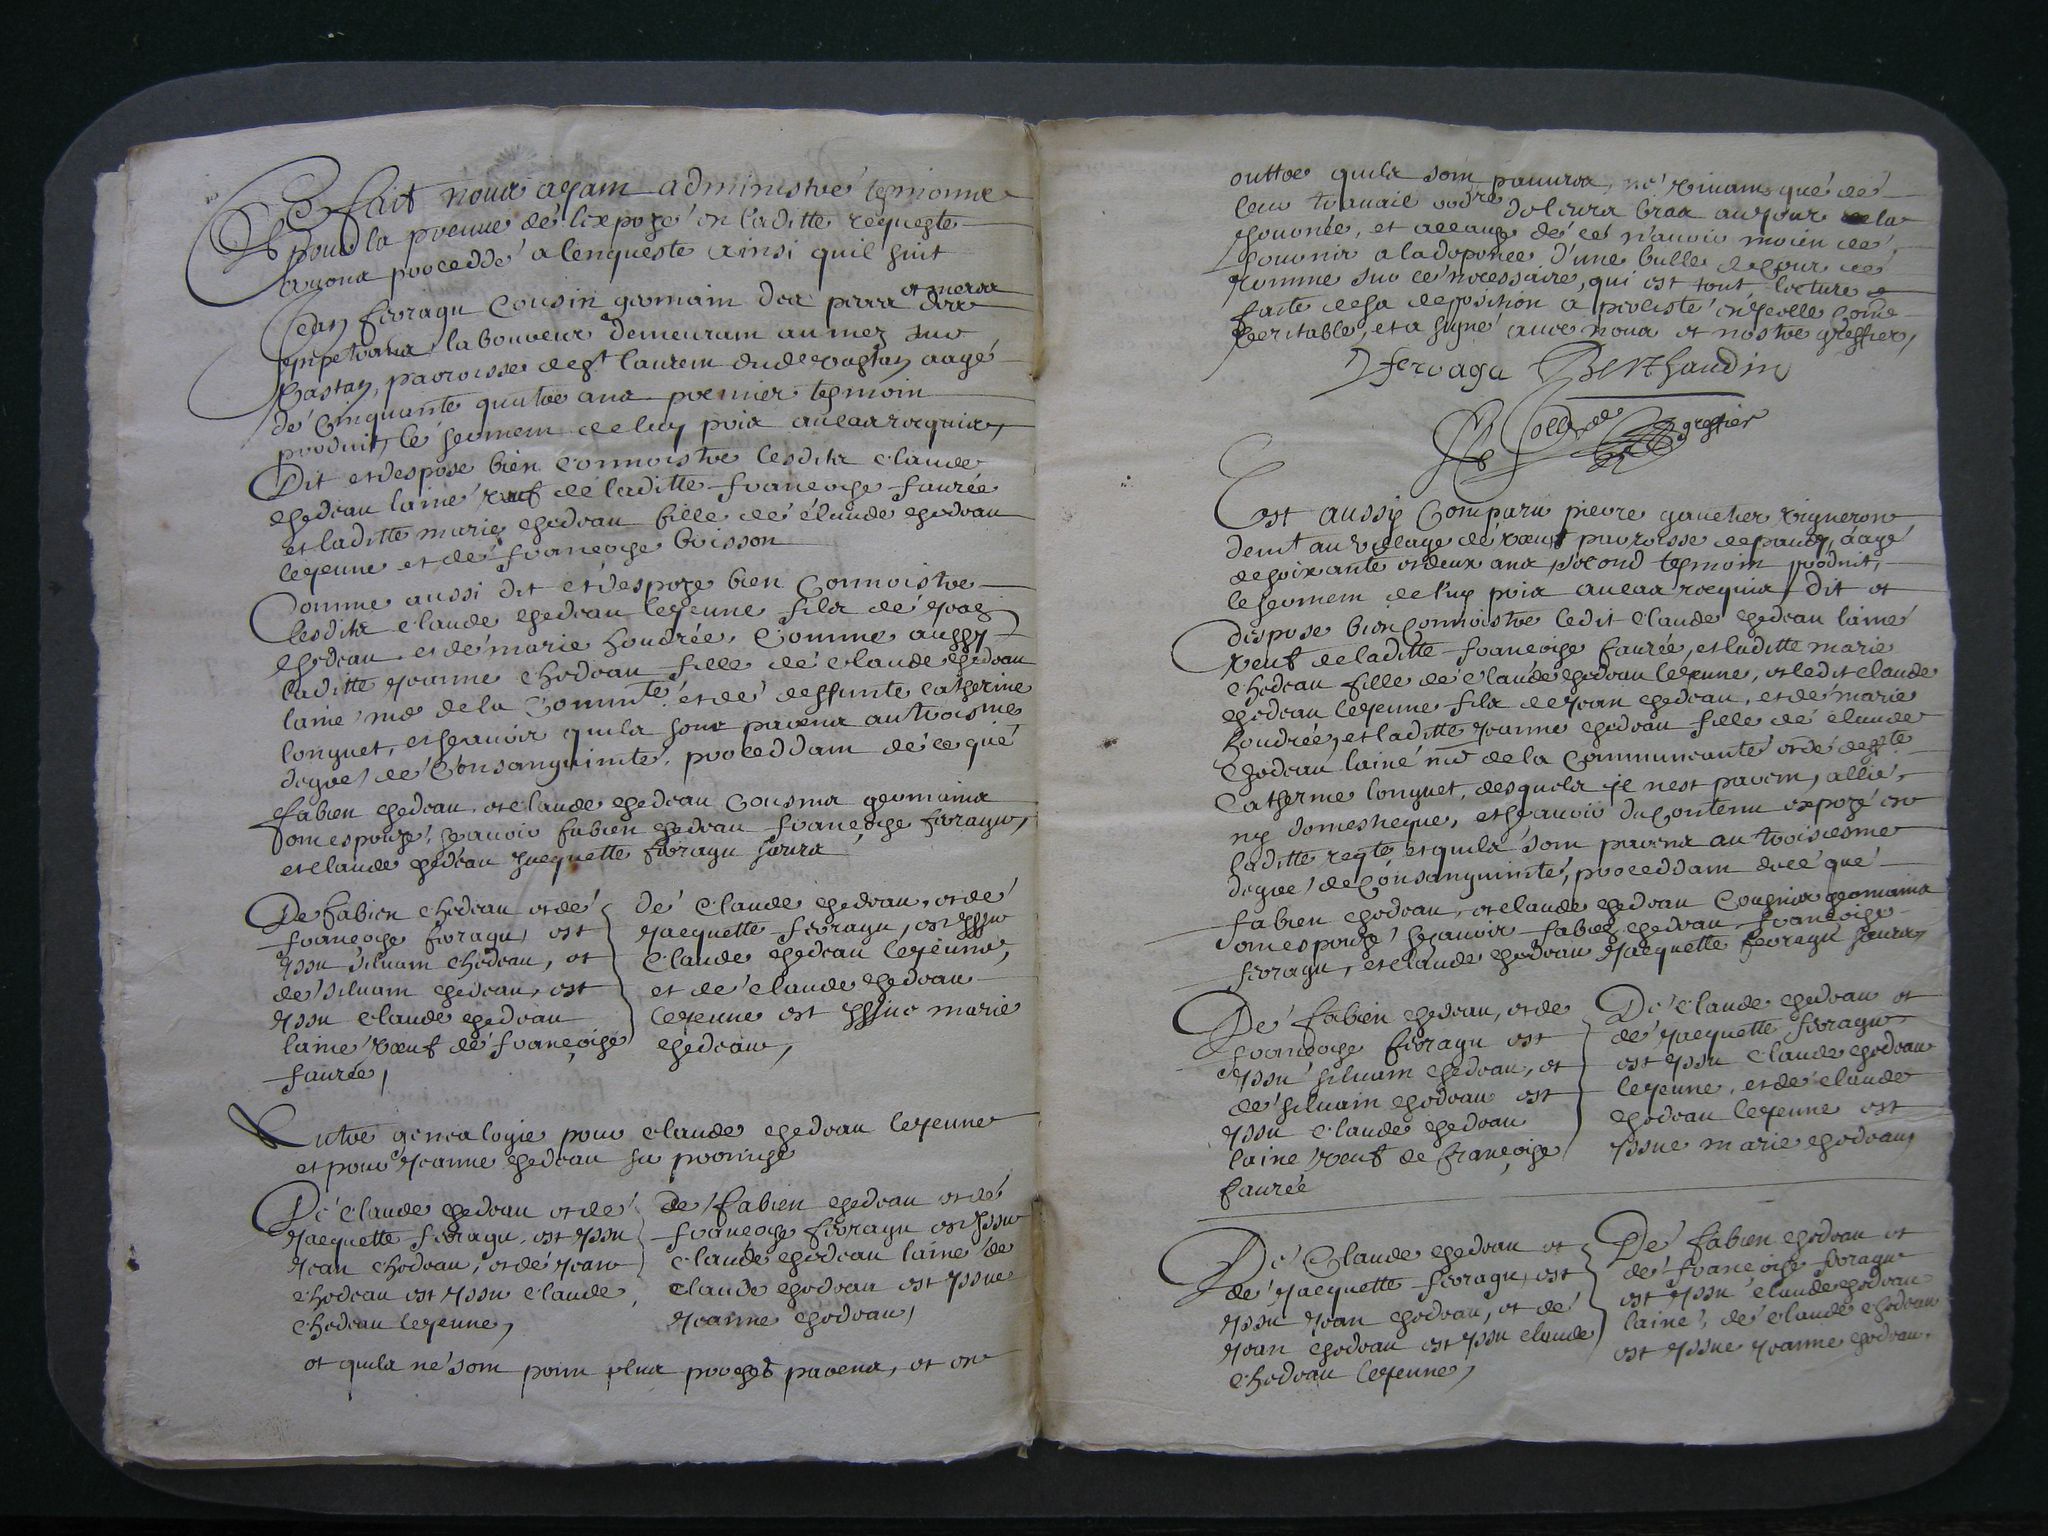 Ce fait nous ayant administré tesmoins
pour la preuve de l'expozé en laditte requeste
avons proceddé a lenqueste ainsi quil suit
Jean ferragu Cousin germain des peres et meres des
impetrans, laboureur demeurant au mez sur
paroisse de st laurent aagé
de Cinquante quatre ans premier tesmoin
produit, le serment de luy pris au cas requis,
Dit et despose bien Connoistre lesdits Claude
chedeau laine veuf de laditte francoise faurée
et laditte marie chedeau fille de Claude chedeau
lejeune et de francoise buisson
Comme aussi dit et despoze bien Connoistre
lesdits Claude chedeau lejeune fils de jean
chedeau et de marie houdrée, Comme aussy
laditte jeanne chedeau fille de Claude chedeau
laine md de la Commté et de deffunte Catherine
longuet, et scavoir quils sont parens au troisme
degré de Consanguinité, proceddant de ce que
fabien chedeau, et Claude chedeau Cousins germains
ont espouzé, scavoir fabien chedeau francoise ferragu,
et Claude chedeau jacquette ferragu soeurs
De fabien chedeau et de
francoise ferragu, est
yssu silvain chedeau, et
de silvain chedeau, est
yssu Claude chedeau
laine veuf de francoise
faurée,
de Claude chedeau, et de
jacquette ferragu, est yssu
Claude chedeau lejeune,
et de Claude chedeau
lejeune est yssue marie
chedeau,
Autre genealogie pour Claude chedeau lejeune
et pour jeanne chedeau sa promise
De Claude chedeau et de
jacquette ferragu, est yssu
jean chedeau, et de jean
chedeau est yssu Claude
chedeau lejeune,
De fabien chedeau et de
francoise ferragu est yssu
Claude chedeau laine de
Claude chedeau est yssue
jeanne chedeau,
et quils ne sont point plus proches parens, et en
outtre quils sont pauvres, ne vivant que de
leur travail de leurs bras au jour la
journée, et a cause de ce n'avoir moien de
fournir a la dépence d'une bulle de Cour de
Romme sur ce necessaire, qui est tout lecture
faite de sa deposition a persisté en icelle Comme
veritable, et a signé avec nous et nostre greffier,
J fervagu Berthandin
greffier
Est aussy Comparu pierre gaucher vigneron
demt au village de paroisse de aagé
de soixante et deux ans, second tesmoin produit,
le serment de luy pris au cas requis, dit et
depose bien Connoistre ledit Claude chedeau laine
veuf de laditte francoise faurée, et laditte marie
chedeau fille de Claude chedeau lejeune, et ledit Claude
chedeau lejeune fils de jean chedeau, et de marie
houdrée, et laditte jeanne chedeau fille de Claude
Chedeau lainé md de la Communeauté et de deffte
Catherine longuet, desquels il nest parent, allié,
ny domesticque, et scavoir du Contenu expozé en
laditte reqte et quils sont parens au troisiesme
degré de Consanguinité, proceddant de ce que
fabien chedeau, et Claude chedeau Cousins germains
ont espouzé, scavoir fabien chedeau francoise
ferragu, et Claude chedeau jacquette ferragu soeurs,
De fabien chedeau, et de
francoise ferragu est
yssu silvain chedeau, et
de silvain chedeau est
yssu Claude chedeau
laine veuf de francoise
faurée
De Claude chedeau et
de jacquette ferragu
est yssu Claude chedeau
lejeune, et de Claude
chedeau lejeune est
yssue marie chedeau,
De Claude chedeau et
de jacquette ferragu, est
yssu jean chedeau, et de
jean chedeau est yssu Claude
chedeau lejeune,
De fabien chedeau et
de francoise ferragu
est yssu Claude chedeau
laine, de Claude chedeau
est yssue jeanne chedeau,